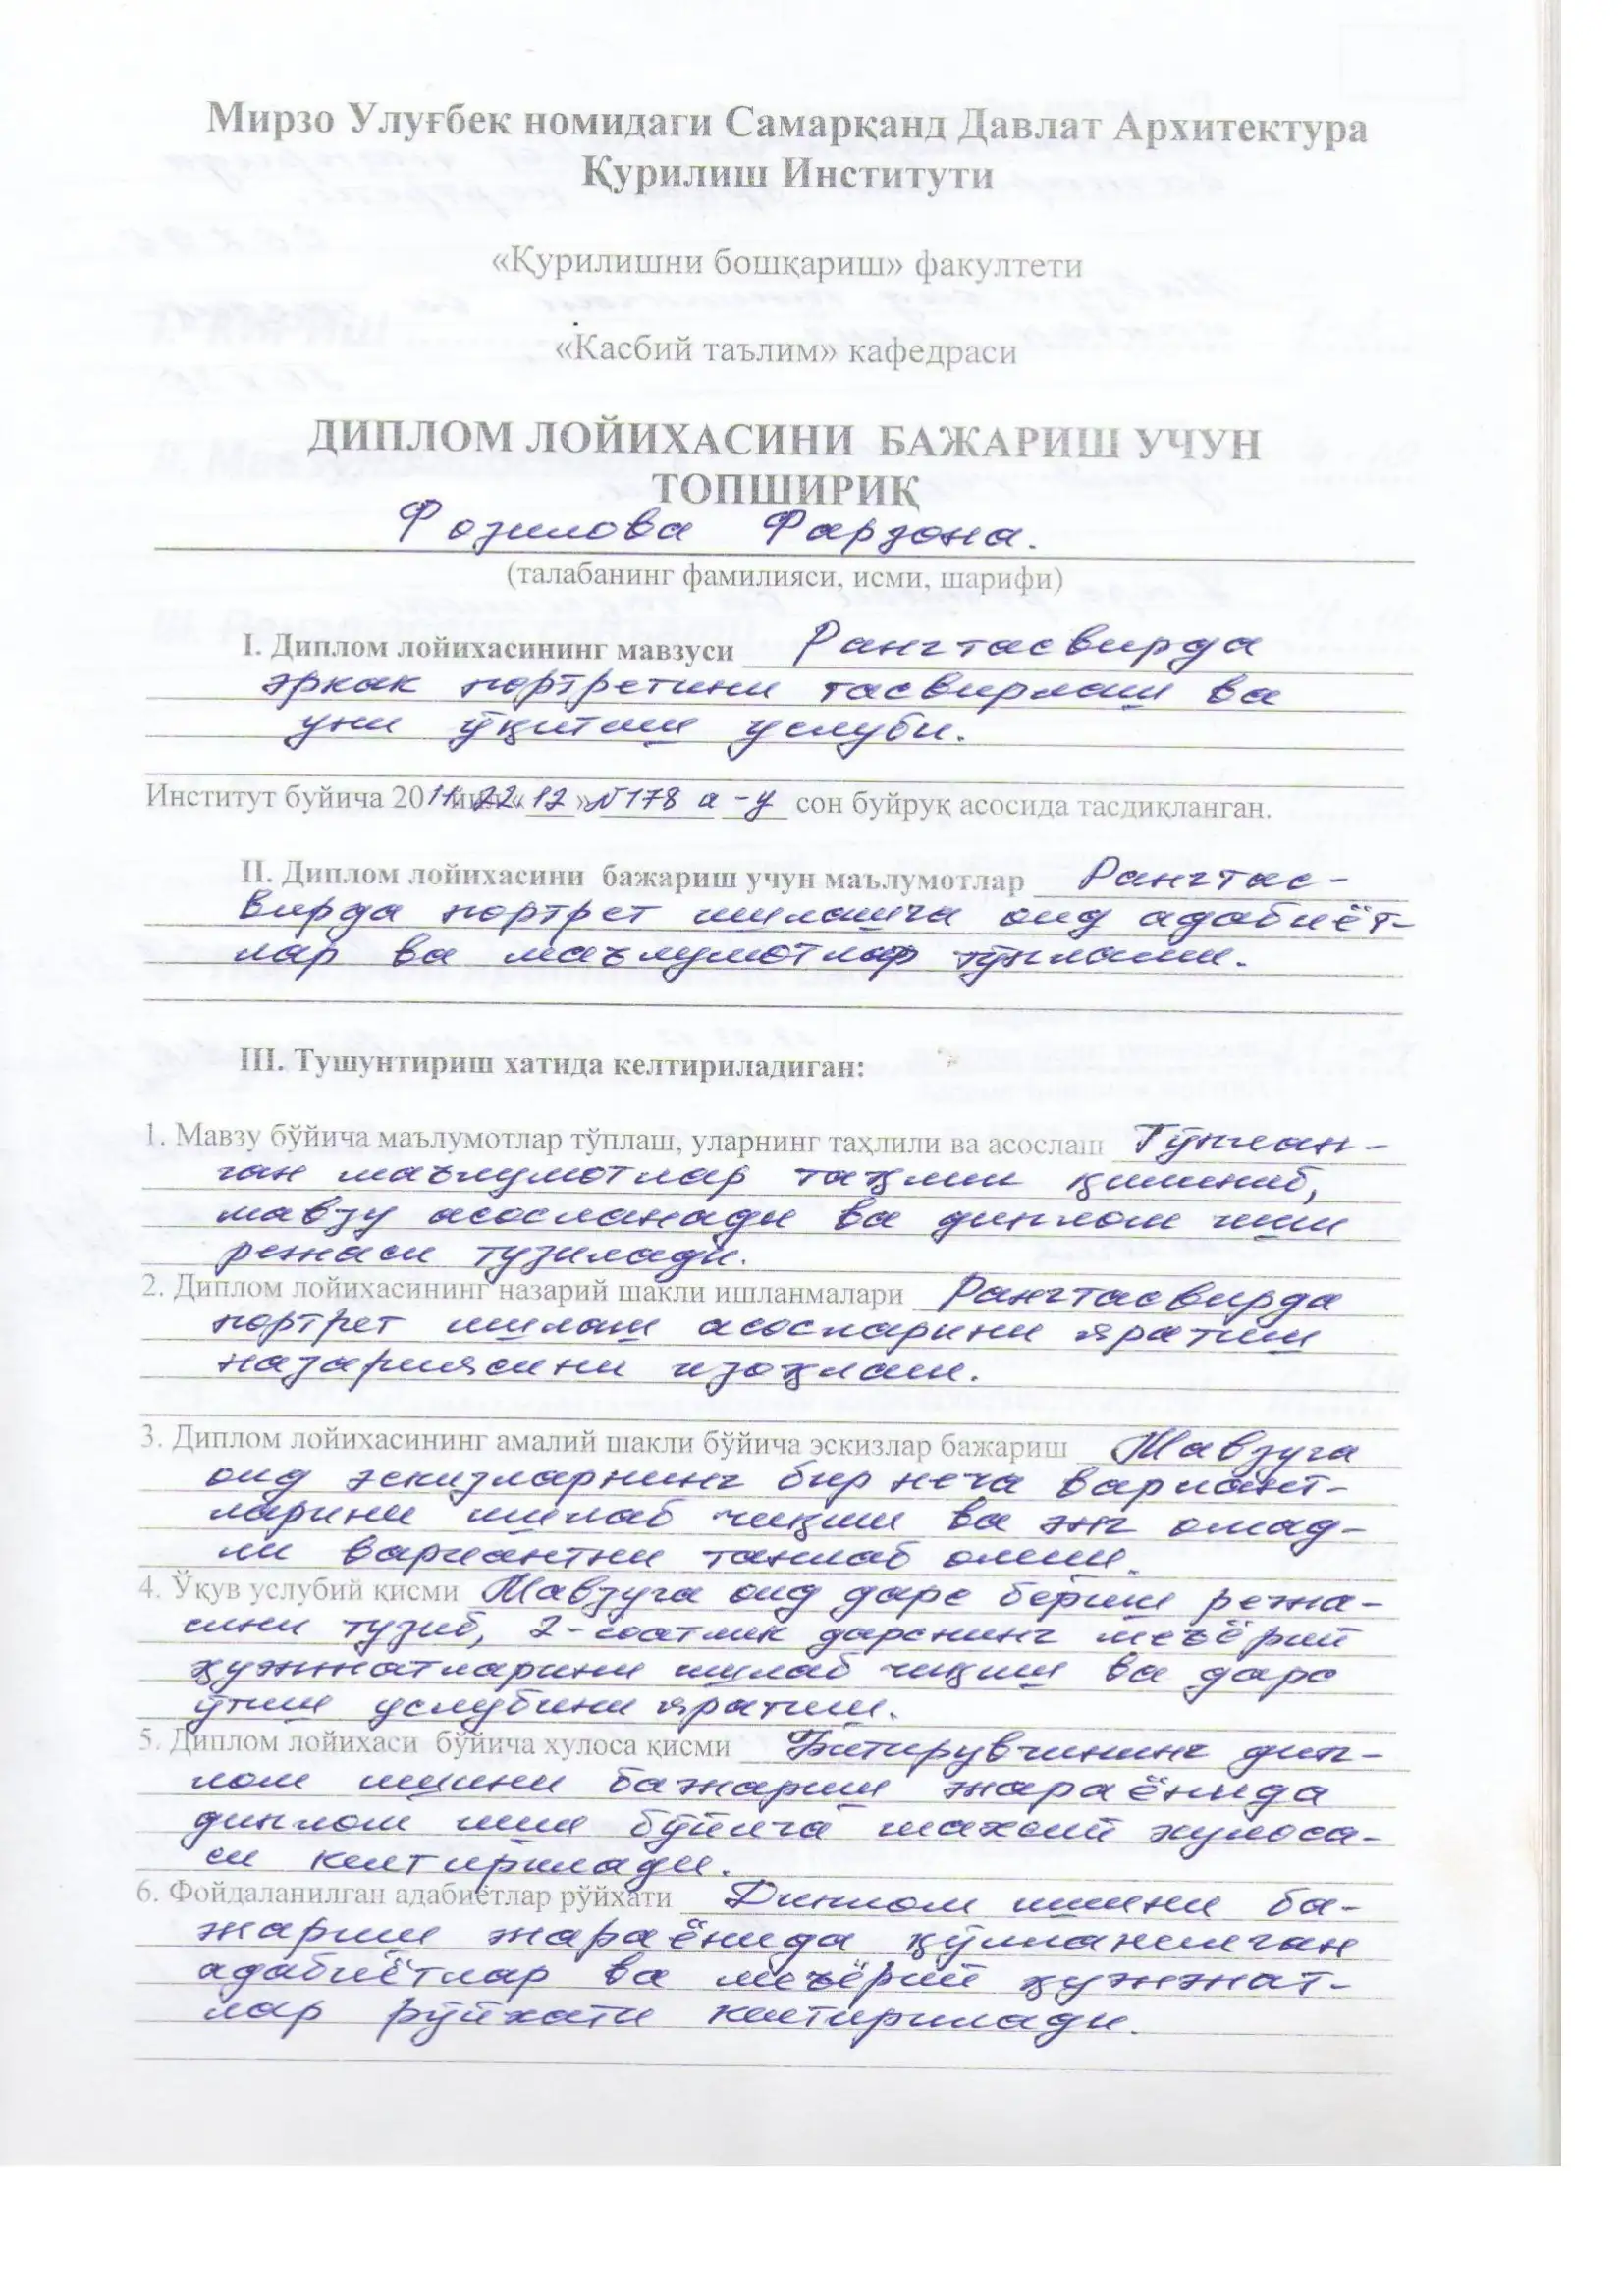 Мирзо Улуғбек номидаги Самарқанд Давлат Архитектура
Қурилиш Институти
«Қурилишни бошқариш» факултети
«Касбий таълим» кафедраси
ДИПЛОМ ЛОЙИХАСИНИ БАЖАРИШ УЧУН
ТОПШИРИҚ
Фозилова Фарзона.
(талабанинг фамилияси, исми, шарифи)
I. Диплом лойихасининг мавзуси Рангтасвирда
эркак портретини тасвирлаш ва
уни ўқитиш услуби.
Институт буйича 2011 22 «12» №178 а-у сон буйруқ асосида тасдиқланган.
II. Диплом лойихасини бажариш учун маълумотлар Рангтас-
вирда портрет ишлашга оид адабиёт-
лар ва маълумотлар тўплаш.
III. Тушунтириш хатида келтириладиган:
1. Мавзу бўйича маълумотлар тўплаш, уларнинг таҳлили ва асослаш Тўплан-
ган маълумотлар таҳлил қилиниб,
мавзу асосланади ва диплом иши
режаси тузилади.
2. Диплом лойихасининг назарий шакли ишланмалари Рангтасвирда
портрет ишлаш асосларини яратиш
назариясини изоҳлаш.
3. Диплом лойихасининг амалий шакли бўйича эскизлар бажариш Мавзуга
оид эскизларнинг бир неча вариант-
ларини ишлаб чиқиш ва энг омад-
ли вариантни танлаб олиш.
4. Ўқув услубий қисми Мавзуга оид дарс бериш режа-
сини тузиб, 2-соатлик дарснинг меъёрий
ҳужжатларини ишлаб чиқиш ва дарс
ўтиш услубини яратиш.
5. Диплом лойихаси бўйича хулоса қисми Битирувчининг дип-
лом ишини бажариш жараёнида
диплом иши бўйича шахсий хулоса-
си келтирилади.
6. Фойдаланилган адабиётлар рўйхати Диплом ишини ба-
жариш жараёнида қўлланилган
адабиётлар ва меъёрий ҳужжат-
лар рўйхати келтирилади.